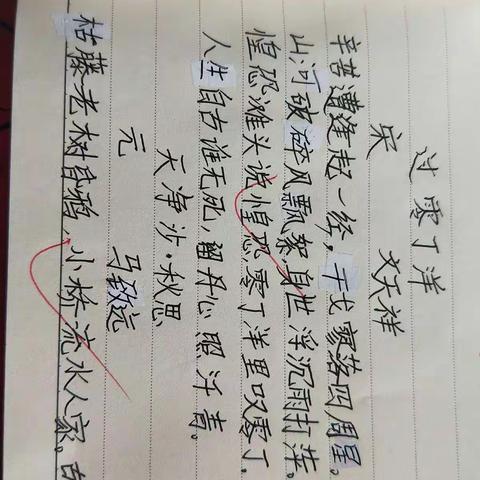 过零丁洋
宋 文天祥
辛苦遭逢起一经，干戈寥落四周星。
山河破碎风飘絮身世浮沉雨打萍。
惶恐滩头说惶恐，零丁洋里叹零丁。
人生自古谁无死，留丹心照汗青。
天净沙·秋思
元 马致远
枯藤老树昏鸦，小桥流水人家。古